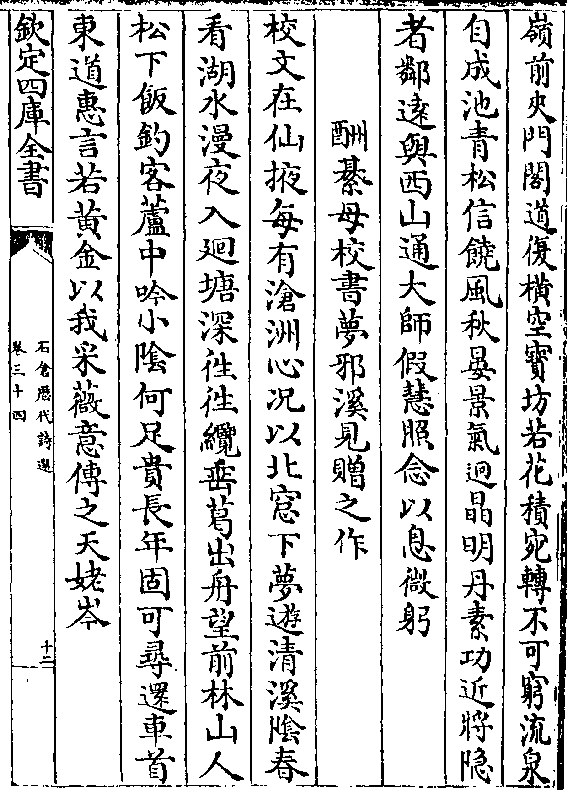 嶺前夾門閣道復横空寶坊若花積宛轉不可窮流泉
自成池青松信饒風秋晏景氣迥晶明丹素功近將隐
者鄰遠與西山通大師假慧照念以息微躬
酬綦母校書夢邪溪見贈之作
校文在仙掖每有滄洲心况以北窓下夢遊清溪陰春
看湖水漫夜入廻塘深徃徃纜垂葛出舟望前林山人
松下飯釣客蘆中吟小隂何足貴長年固可尋還車首
東道惠言若黄金以我采薇意傳之天姥岑
欽定四庫全書
石倉歴代詩選
卷三十四
十二